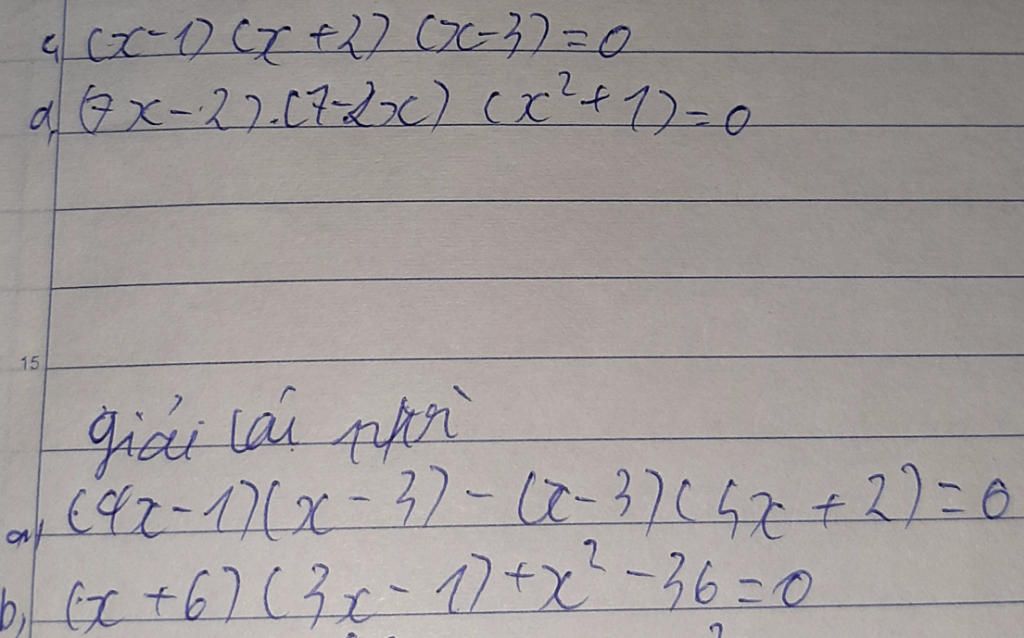 c, (x-1) (x+2) (x-3)=0
d, (7x-2).(7-2x) (x²+1)=0
15
giải cái
a, (4x-1)(x-3)-(x-3)(5x+2)=0
b, (x+6)(3x-1)+x²-36=0